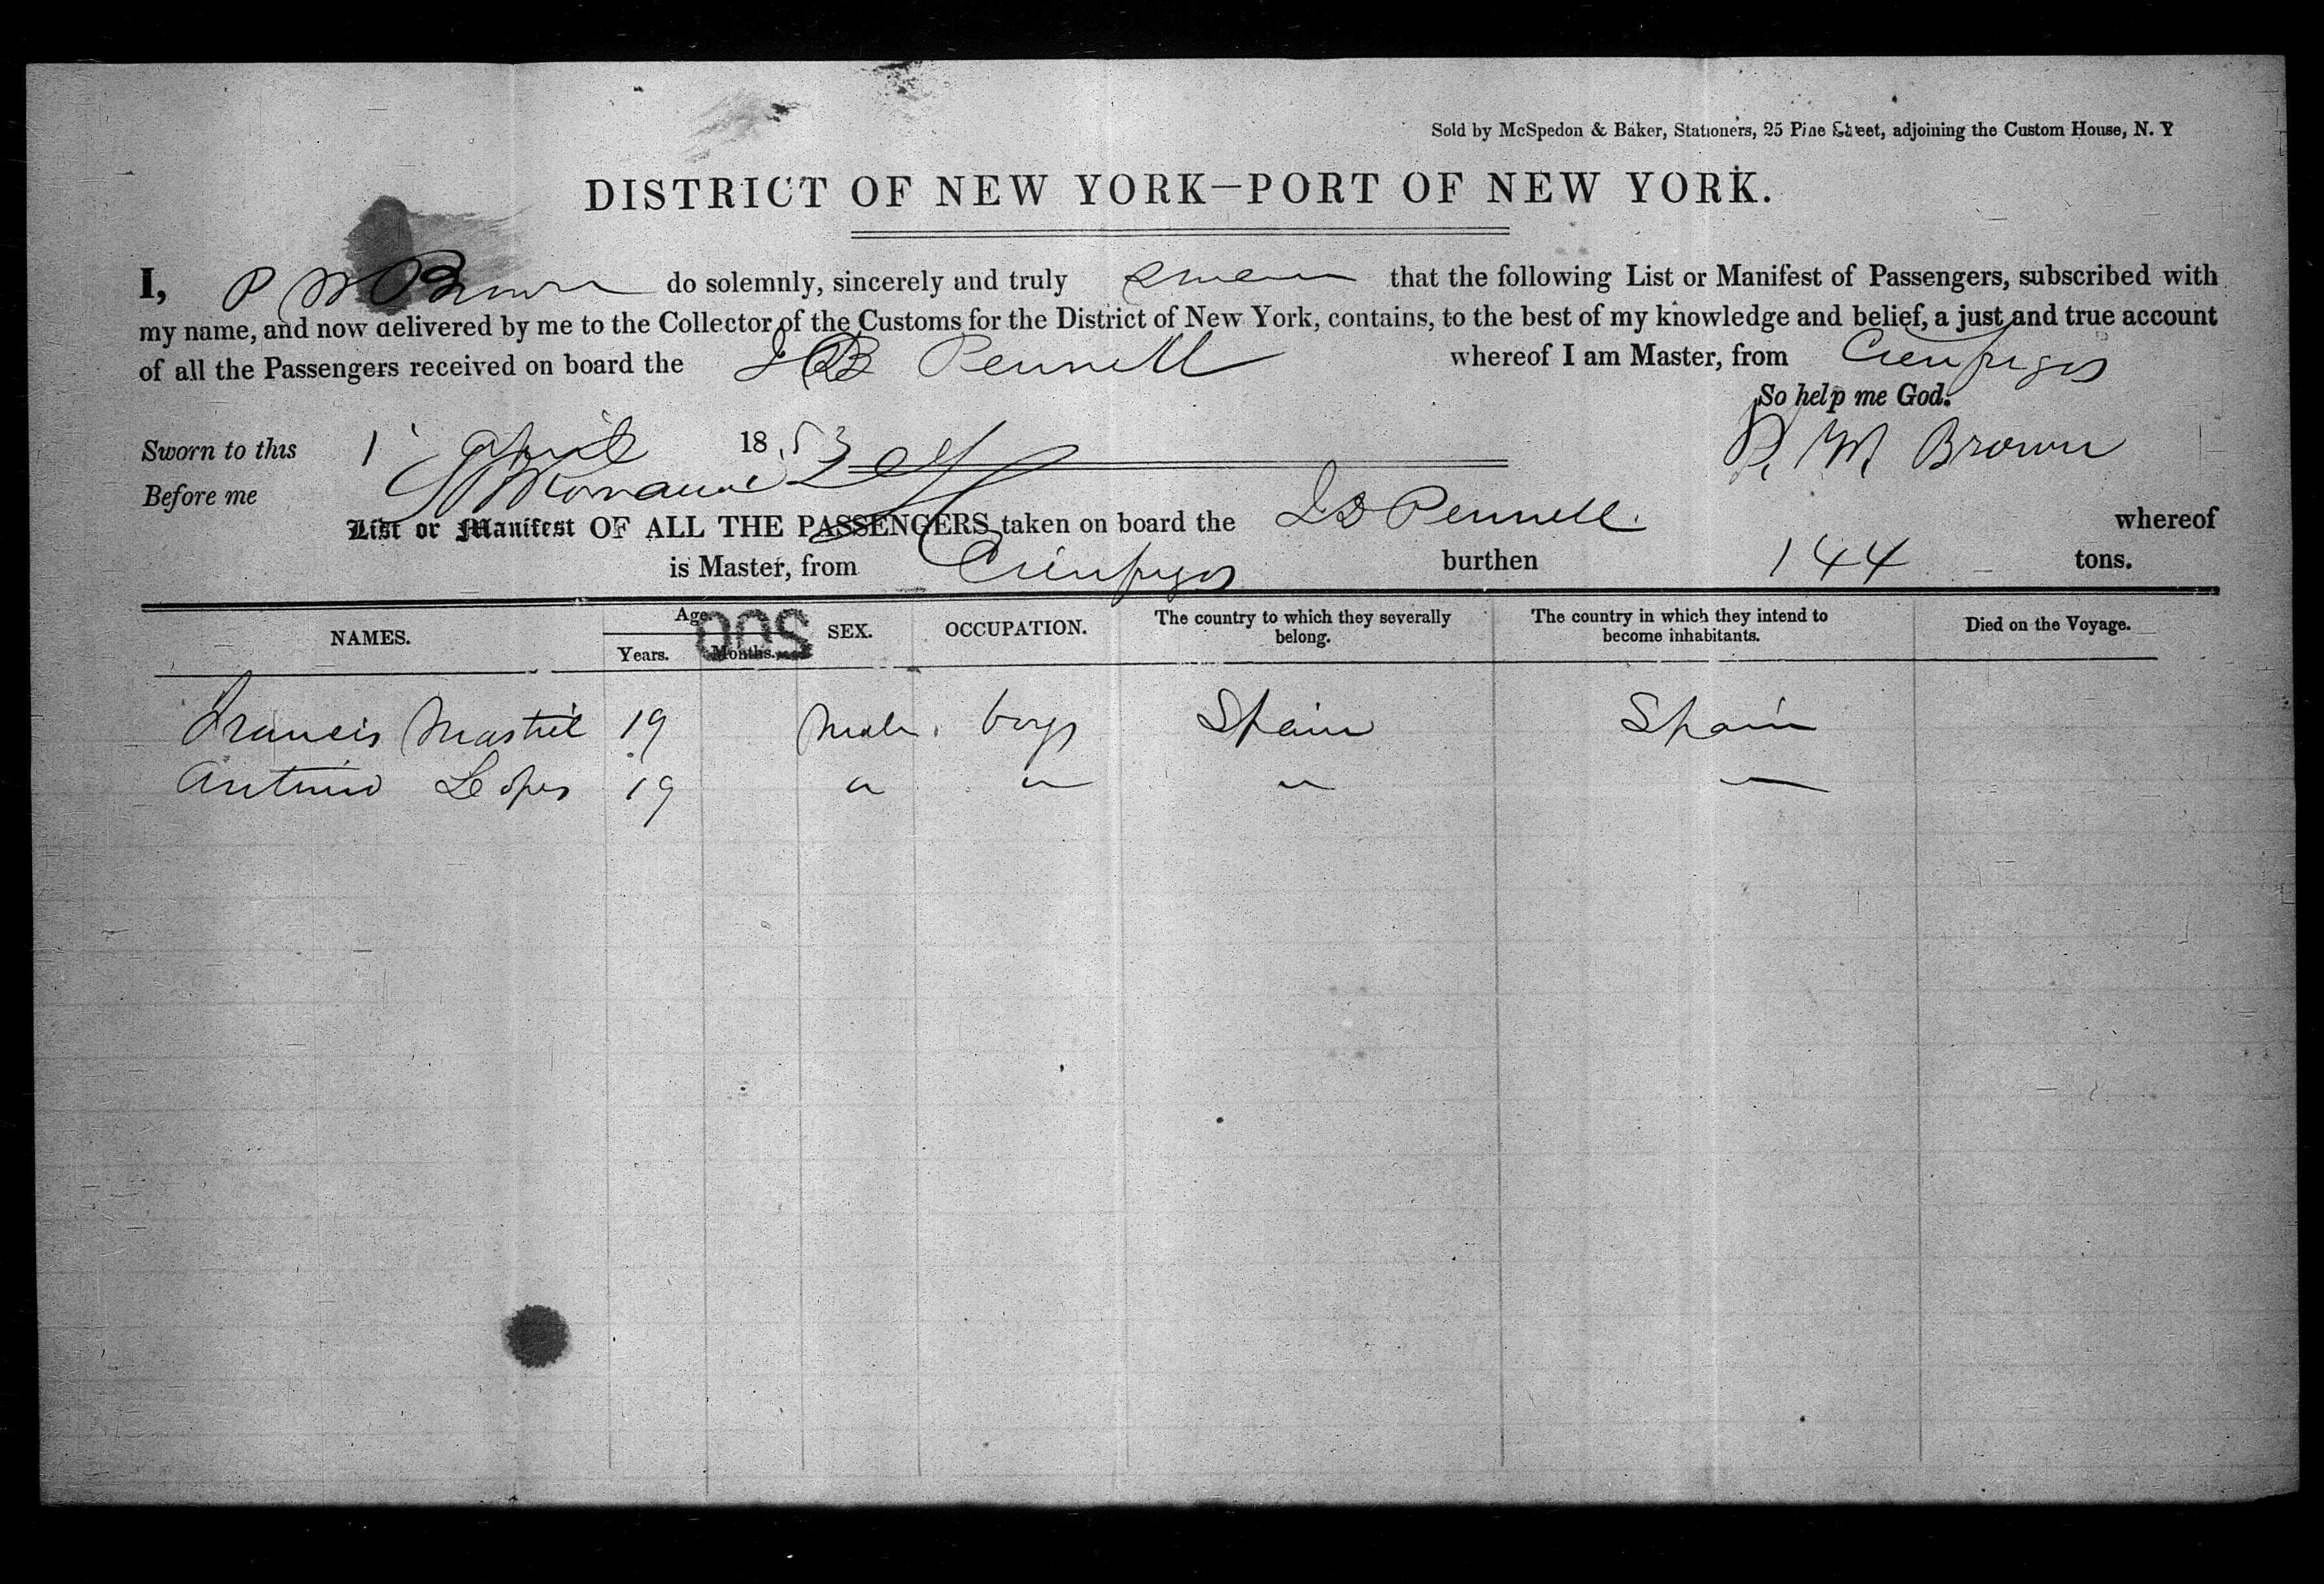 Sold by McSpedon & Baker, Stationers, 25 Pine Street, adjoining the Custom House, N. Y
DISTRICT OF NEW YORK—PORT OF NEW YORK.
I, P W Brown do solemnly, sincerely and truly swear that the following List or Manifest of Passengers, subscribed with
my name, and now delivered by me to the Collector of the Customs for the District of New York, contains, to the best of my knowledge and belief, a just and true account
of all the Passengers received on board the J B Pennell whereof I am Master, from Cienfugos
So help me God.
Sworn to this 1 April 1853 P. W Brown
Before me
List or Manifest OF ALL THE PASSENGERS taken on board the J B Pennell. whereof
is Master, from Cienfugos burthen 144 tons.
NAMES. Age. Years. Months. SEX. OCCUPATION. The country to which they severally belong. The country in which they intend to become inhabitants. Died on the Voyage.
200
Francis 19 Male boys Spain Spain
Antonio Lopes 19 " " " —